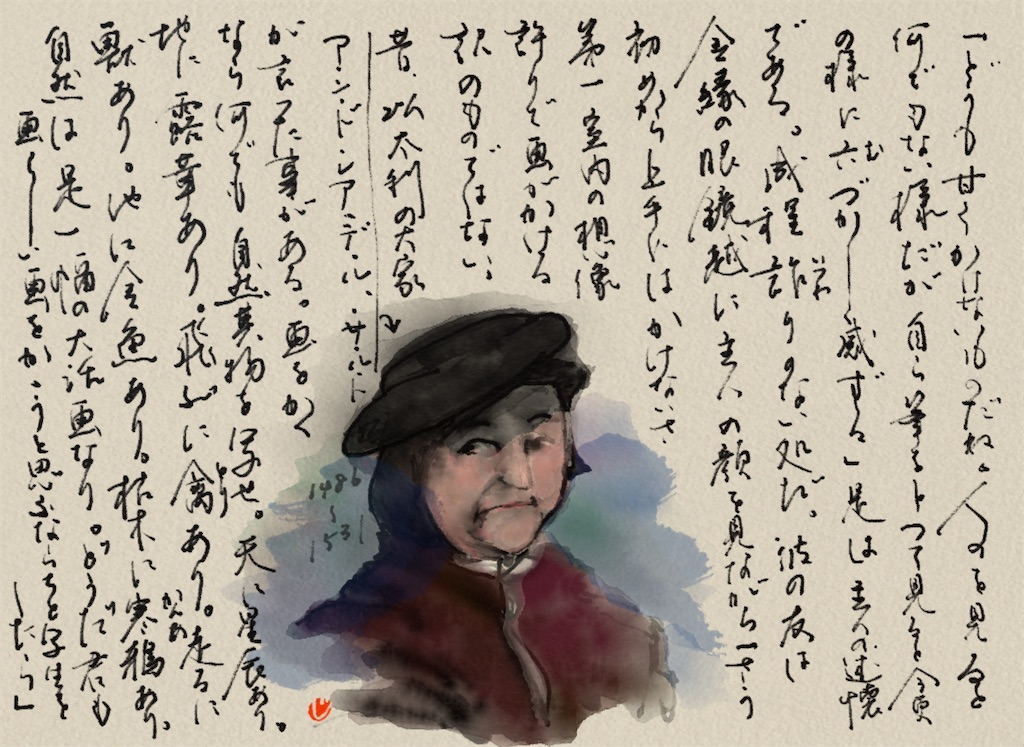 「どうも甘くかけないものだね。人のを見ると
何でもない様だが自ら筆をとって見ると今更
の様に六づかしく感ずる」是は主人の述懐
むである。成程詐りのない処だ。彼の友は
金縁の眼鏡越に主人の顔を見ながら「さう
初めから上手にはかけないさ
第一室内の想像
許りで画がかける
訳のものではない、
昔、以太利の大家
アンドレアデル、サルト
が言った事がある。画をかく
なら何でも自然其物を写せ。天に星辰あり。
地に露華あり。飛ぶに禽あり。走るに
獣あり。池に金魚あり。枯木に寒鴉あり。
自然は是一幅の大活画なり。どうだ君も
画らしい画をかこうと思ふならちと写生を
したら」
1486
~
1531